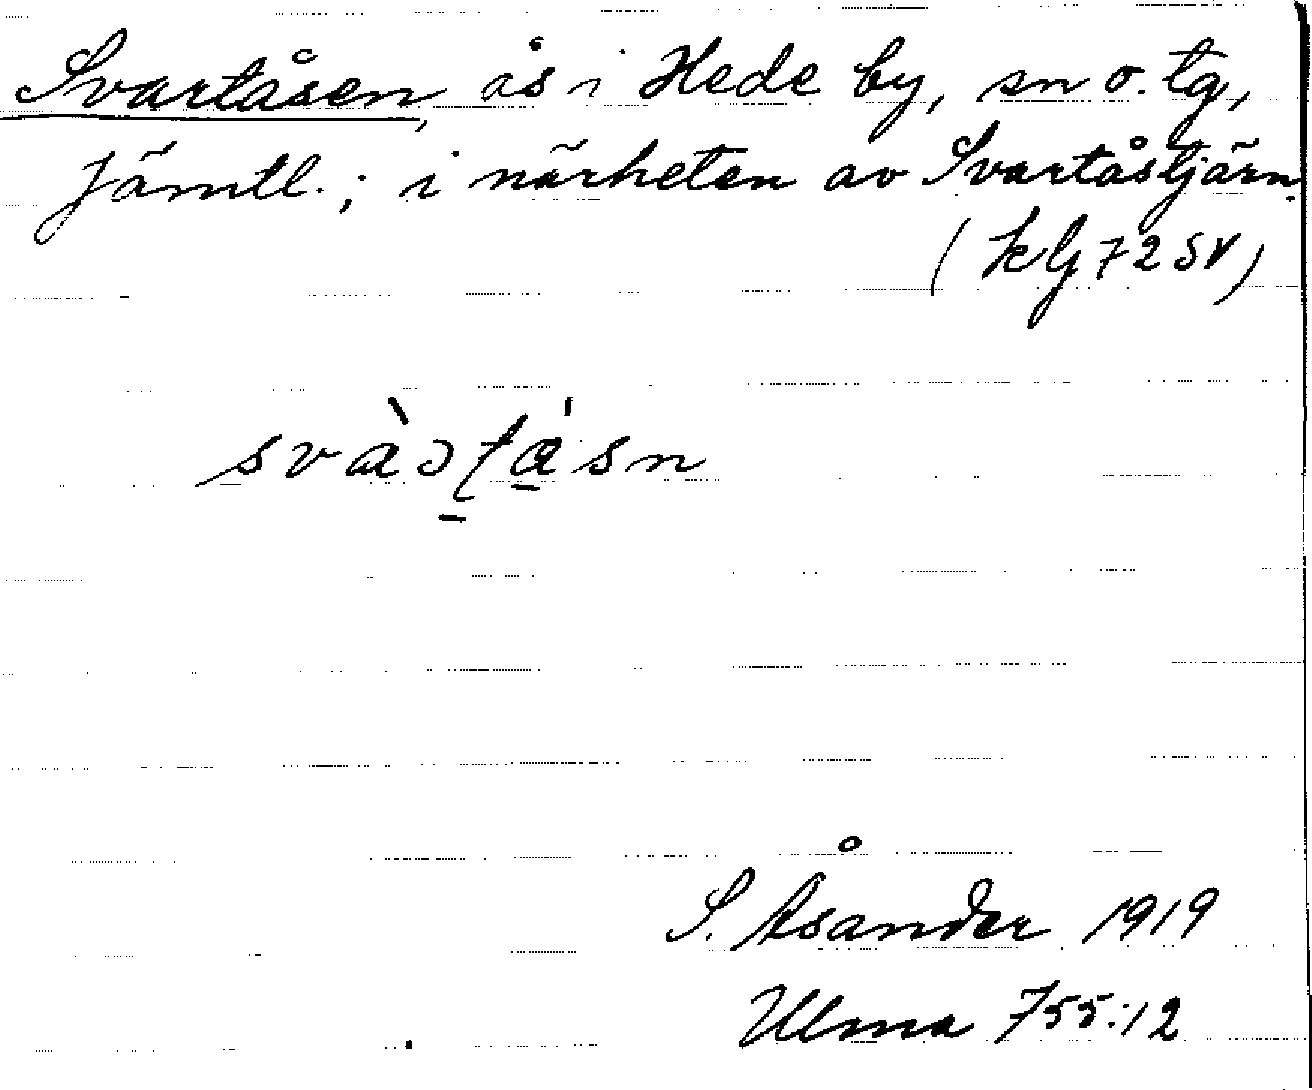 Svartåsen, ås i Hede by, sn o. tg,
Jämtl.; i närheten av Svartåstjärn.
(kbl 72 SV)
S. Åsander 1919
Ulma 755:12